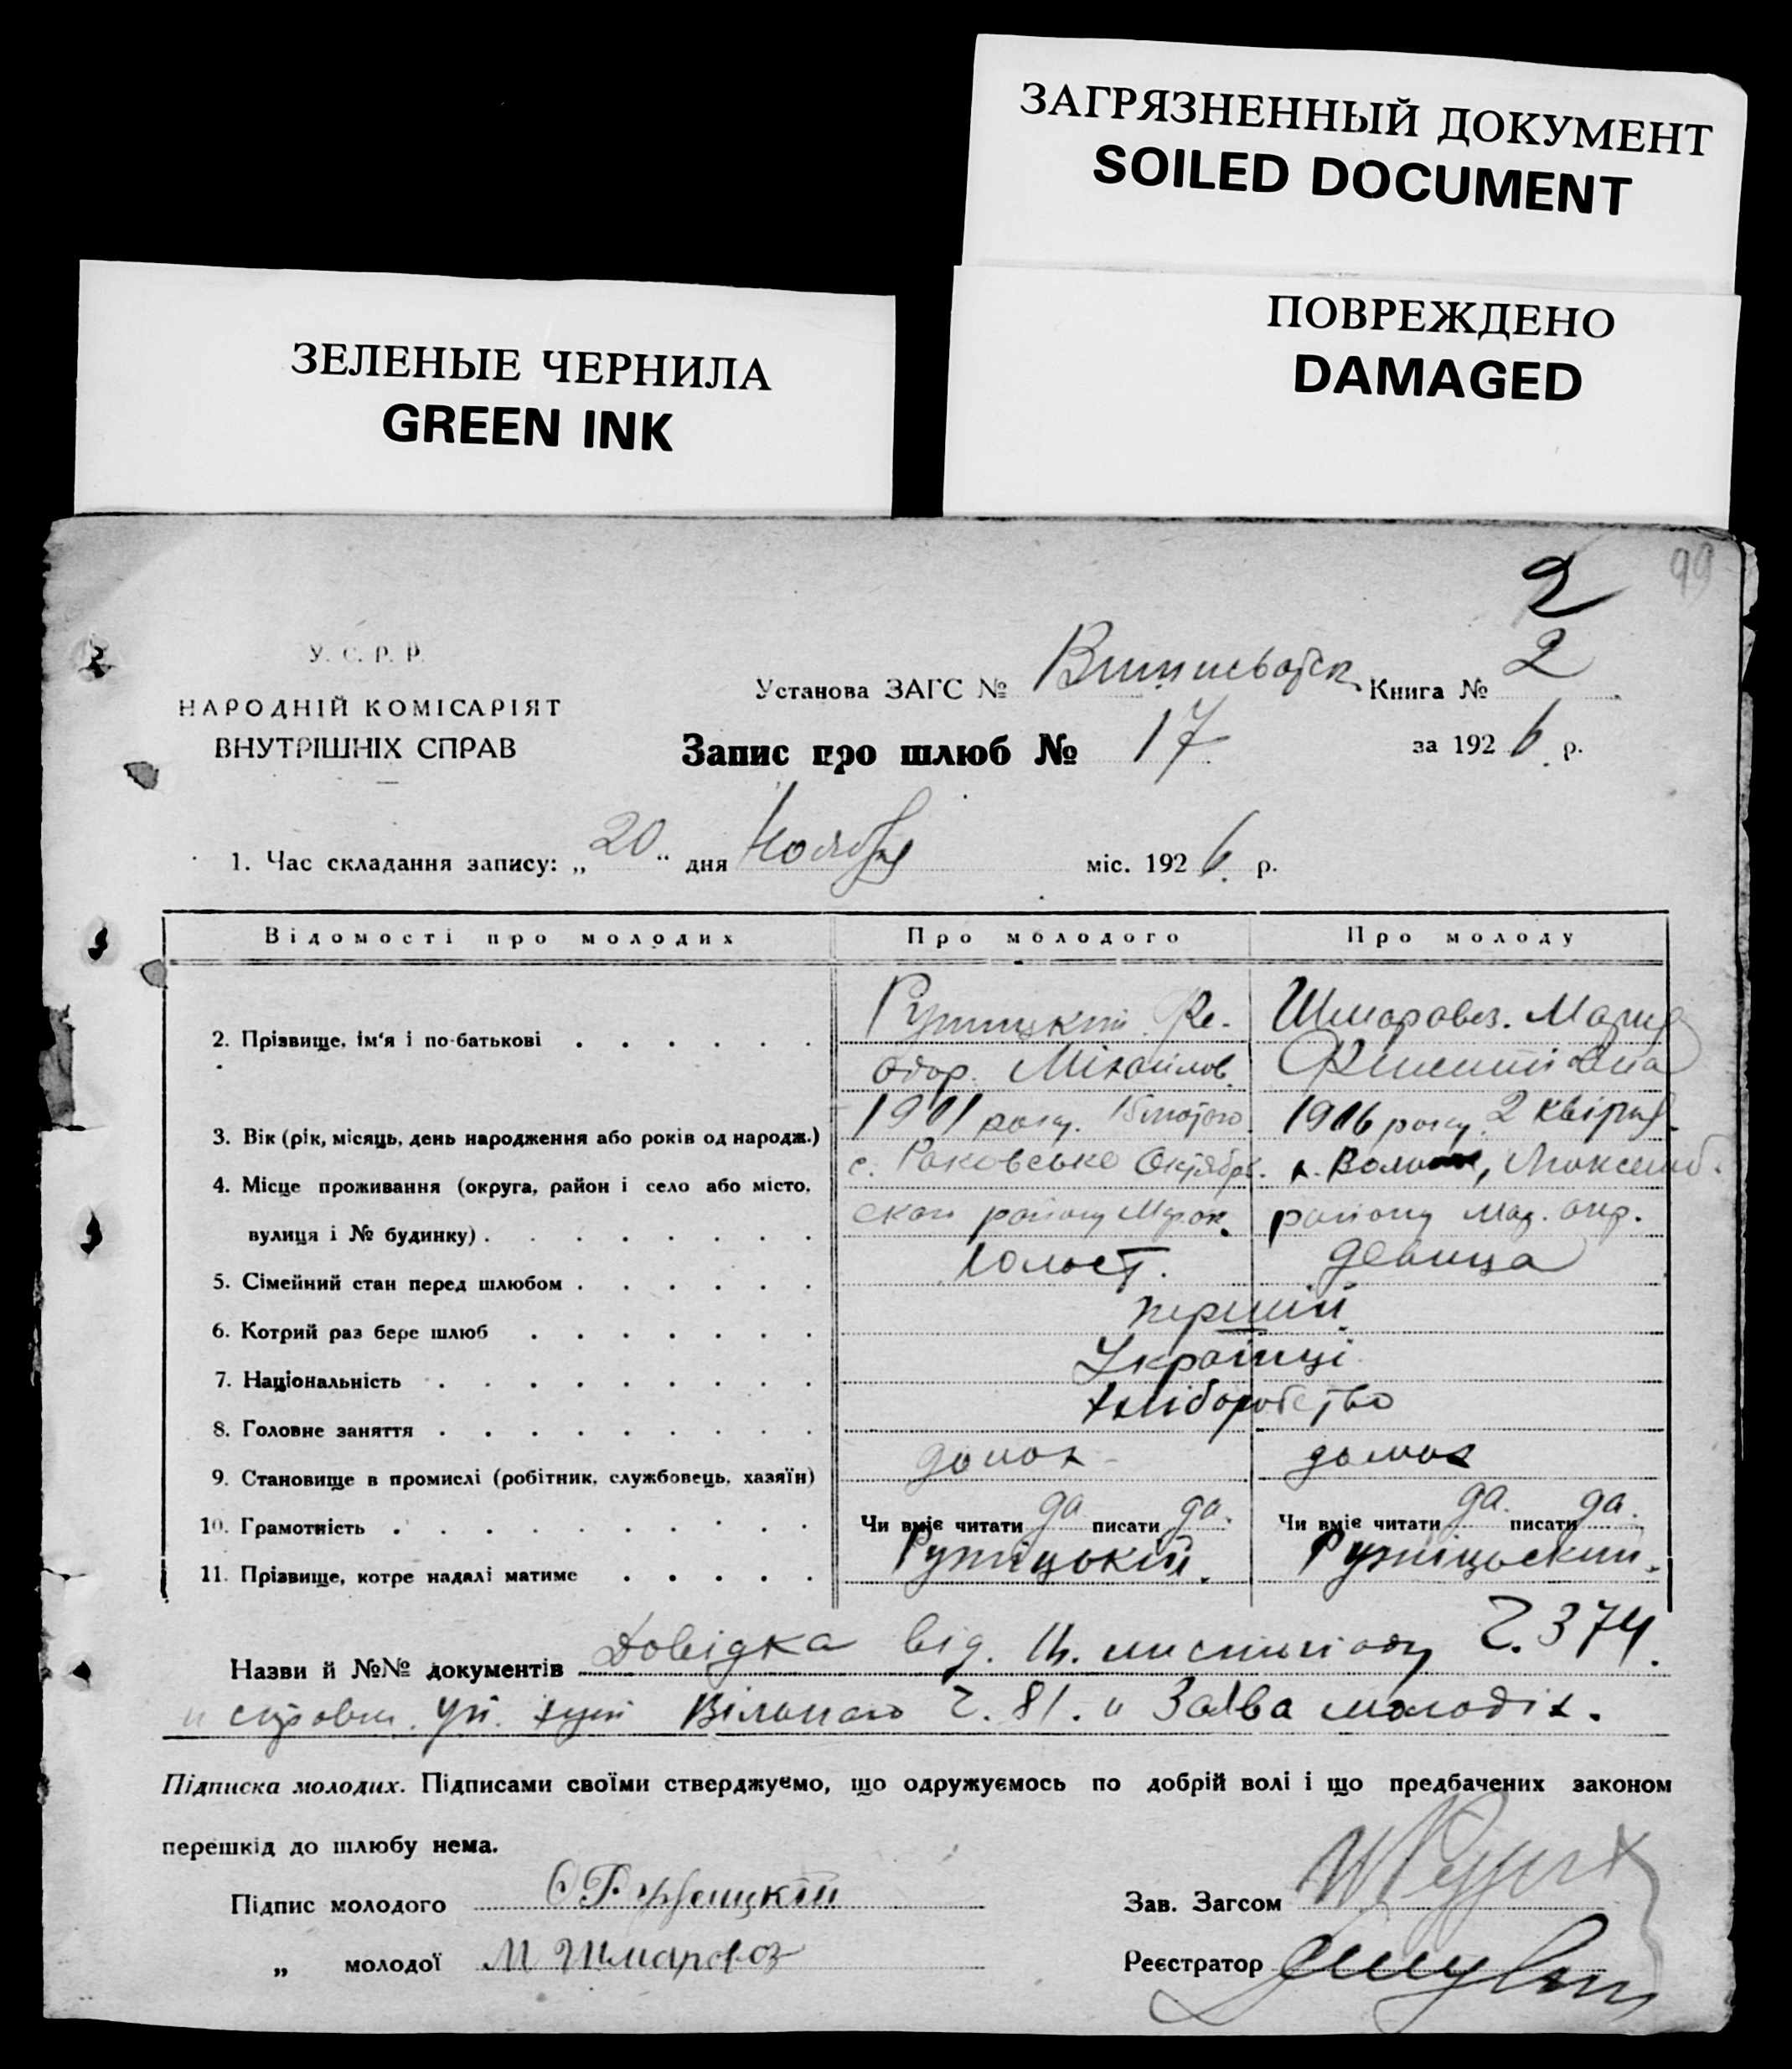 ЗАГРЯЗНЕННЫЙ ДОКУМЕНТ
SOILED DOCUMENT
ПОВРЕЖДЕНО
DAMAGED
ЗЕЛЕНЫЕ ЧЕРНИЛА
GREEN INK
2 99
У. С. Р. Р.
НАРОДНІЙ КОМІСАРІЯТ
ВНУТРІШНІХ СПРАВ
Установа ЗАГС № Книга № 2
Запис про шлюб № 17 за 1926 р.
1. Час складання запису: „20“ дня Ноября міс. 1926 р.
Відомості про молодих Про молодого Про молоду
2. Прізвище, ім'я і по-батькові Ружицкий Фе- Шмаровоз. Мария
одор. Міхайлов.
3. Вік (рік, місяць, день народження або років од народж.) 1901 року. 1906 року. 2 квітня.
4. Місце проживання (округа, район і село або місто, с. Раковсько Октябр.
вулиця і № будинку) району району Мар. окр.
5. Сімейний стан перед шлюбом холост. девица
6. Котрий раз бере шлюб перший
7. Національність Українці
8. Головне заняття хліборобство
9. Становище в промислі (робітник, службовець, хазяїн) домох домох
10. Грамотність Чи вміє читати да писати да. Чи вміє читати да. писати да.
11. Прізвище, котре надалі матиме Ружіцький. Ружіцьский.
Назви й №№ документів Довідка від. 14. листопаду Ч. 374.
и Вільного Ч. 81. и Заява молодіх.
Підписка молодих. Підписами своїми стверджуємо, що одружуємось по добрій волі і що предбачених законом
перешкід до шлюбу нема.
Підпис молодого Зав. Загсом
„ молодої М Шмаровоз Реєстратор